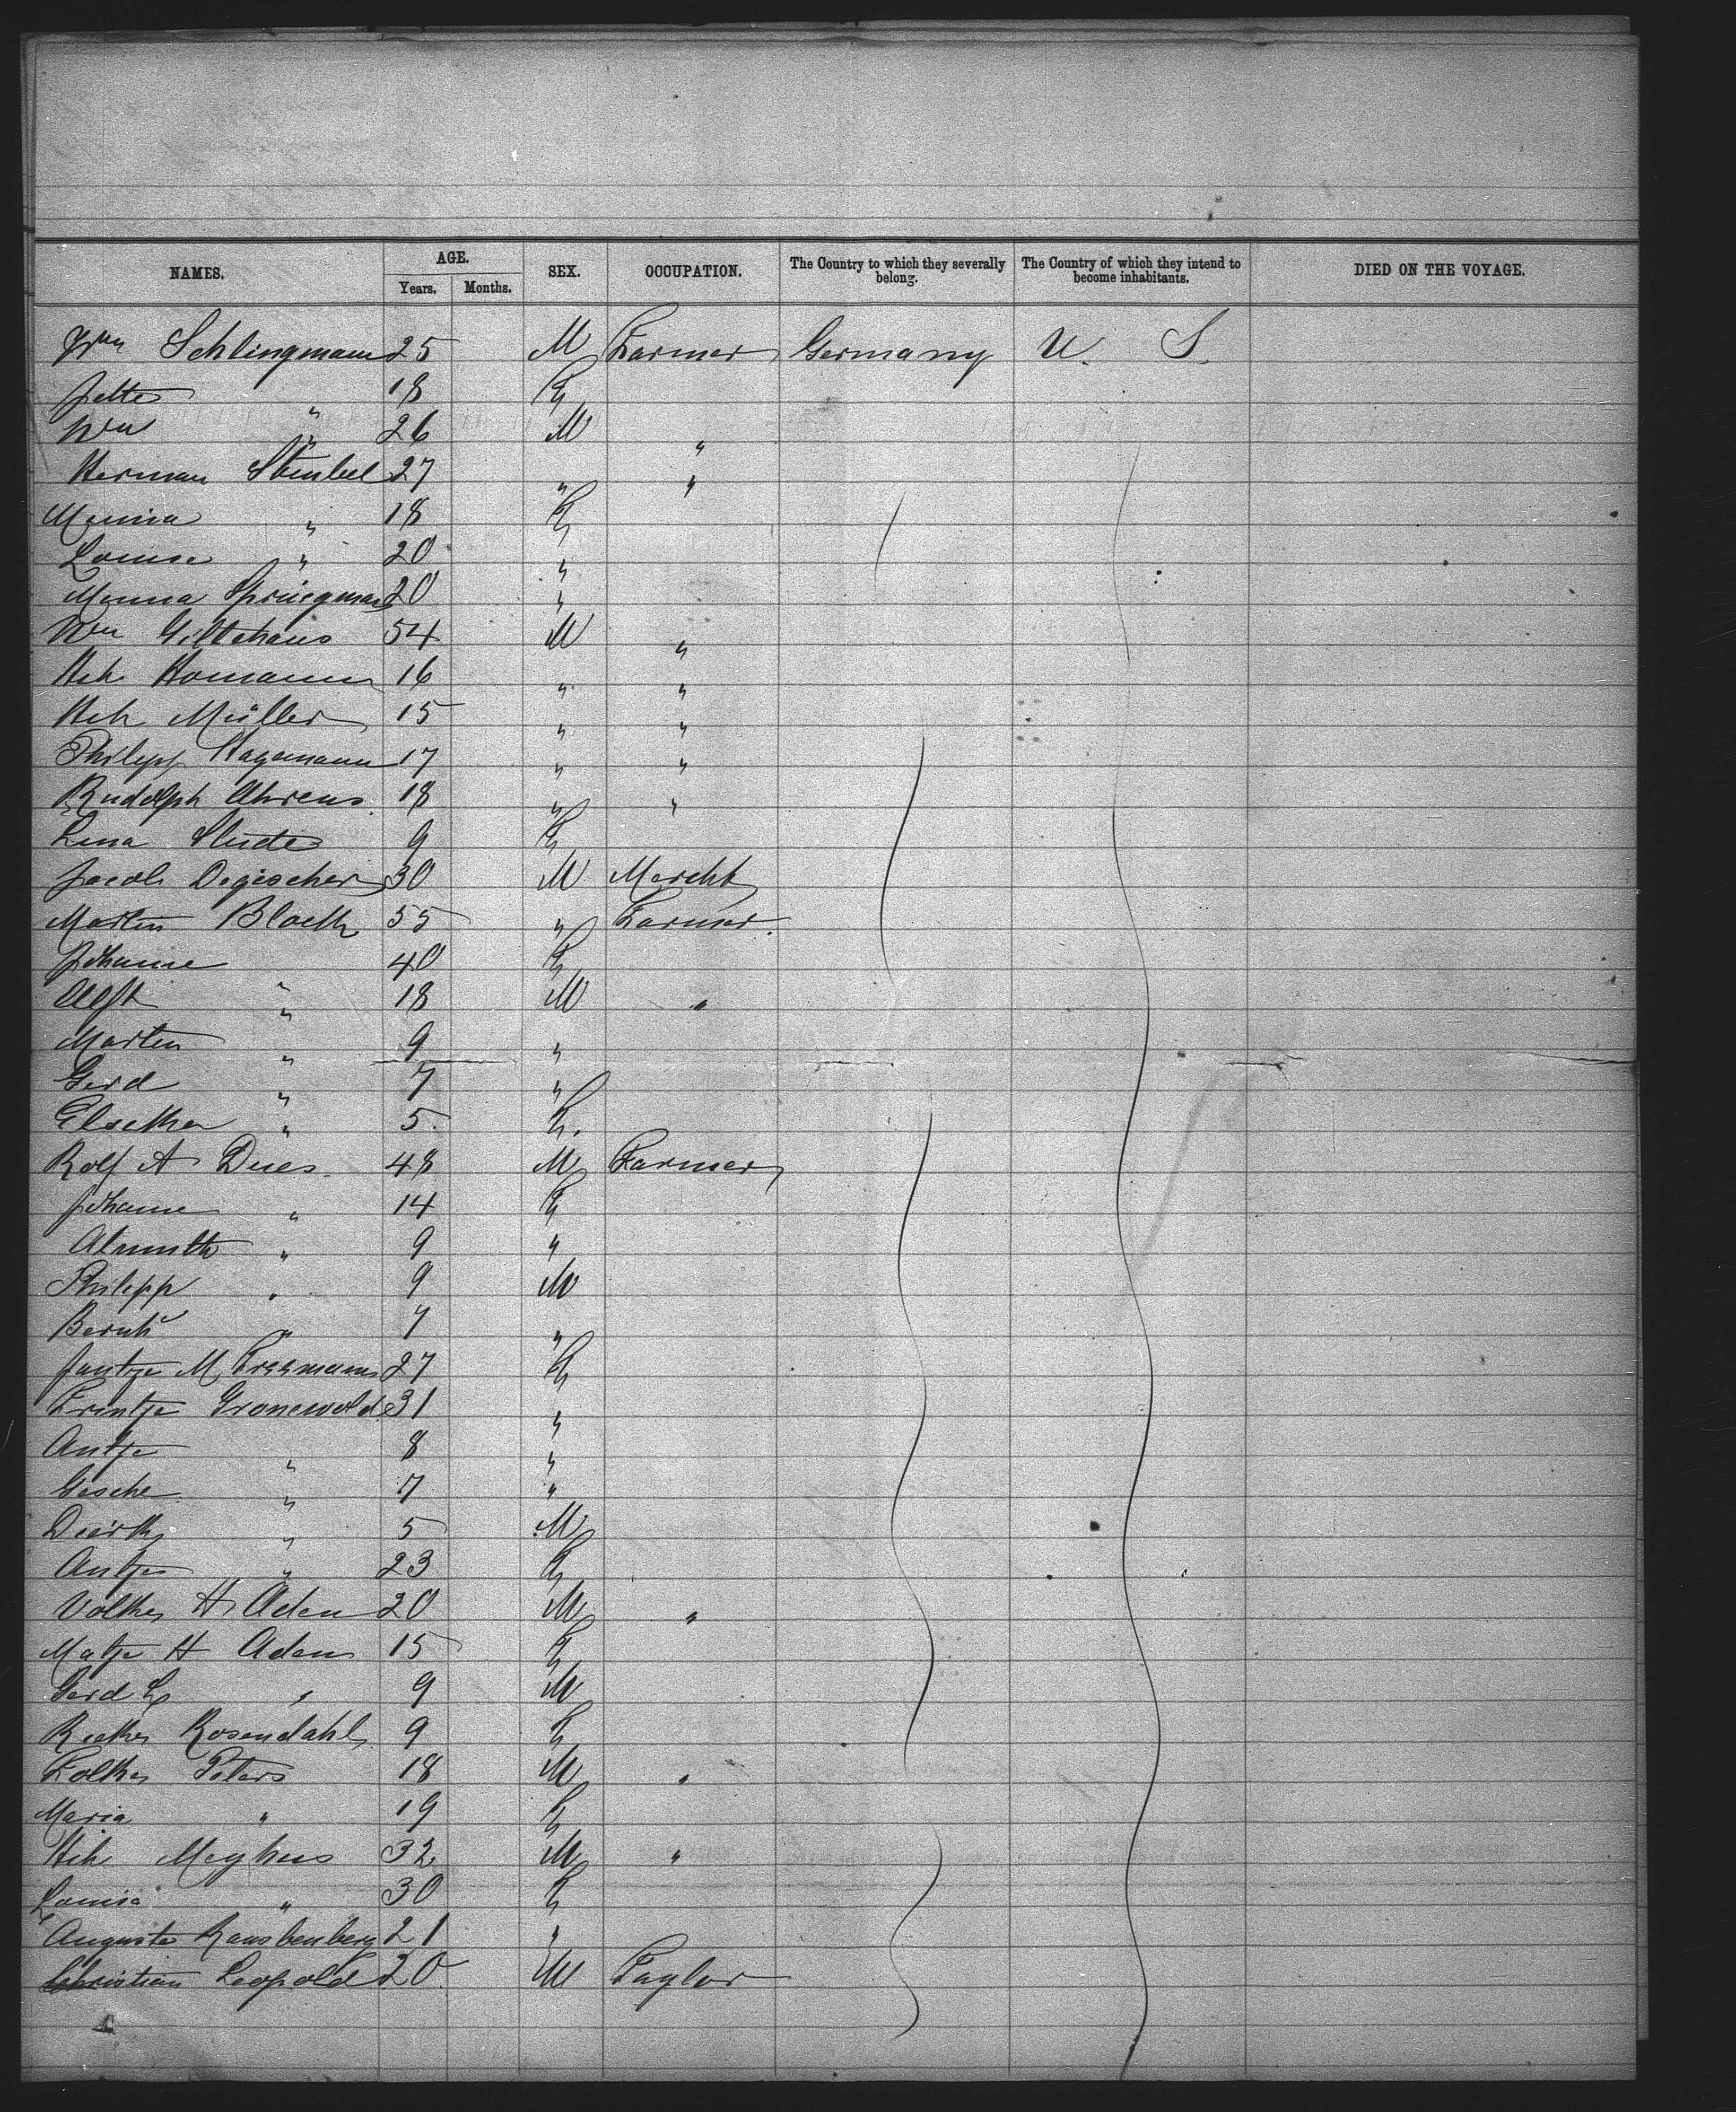 NAMES. AGE. SEX. OCCUPATION. The Country to which they severally belong. The Country of which they intend to become inhabitants. DIED ON THE VOYAGE.
Years. Months.
Wm Schlingmann 25 M Farmer Germany U. S.
Jette " 18 F
Wm " 26 M "
Herman Stenbel 27 " "
Minna " 18 F
Louise " 20 "
Minna Spriegman 20 "
Wm Giltehaus 54 M "
Hch Homann 16 " "
Hch Müller 15 " "
Philipp Hagemann 17 " "
Rudolph Ahrens 18 " "
Lina Stute 9 F
Jacob Degischer 30 M Marcht
Martin Block 55 " Farmer.
Johanne 40 F
" 18 M "
Marten " 9 "
Gerd " 7 "
" 5 F.
Rolf A Dues 48 M Farmer
Johanne " 14 F
Almuth " 9 "
Philipp " 9 M
Bernh " 7 "
Jantje M 27 F
Trintje Gronewold 31 "
Antje " 8 "
Gesche " 7 "
Dierk " 5 M
Antje " 23 F
Volke H Aden 20 M "
Matje H Aden 15 F
Gerd L " 9 M
Rosendahl 9 F
Folke Peters 18 M "
Maria " 19 F
Hch Meyhus 32 M "
Louisa " 30 F
Auguste 21 "
Christian Leopold 20 M Taylor